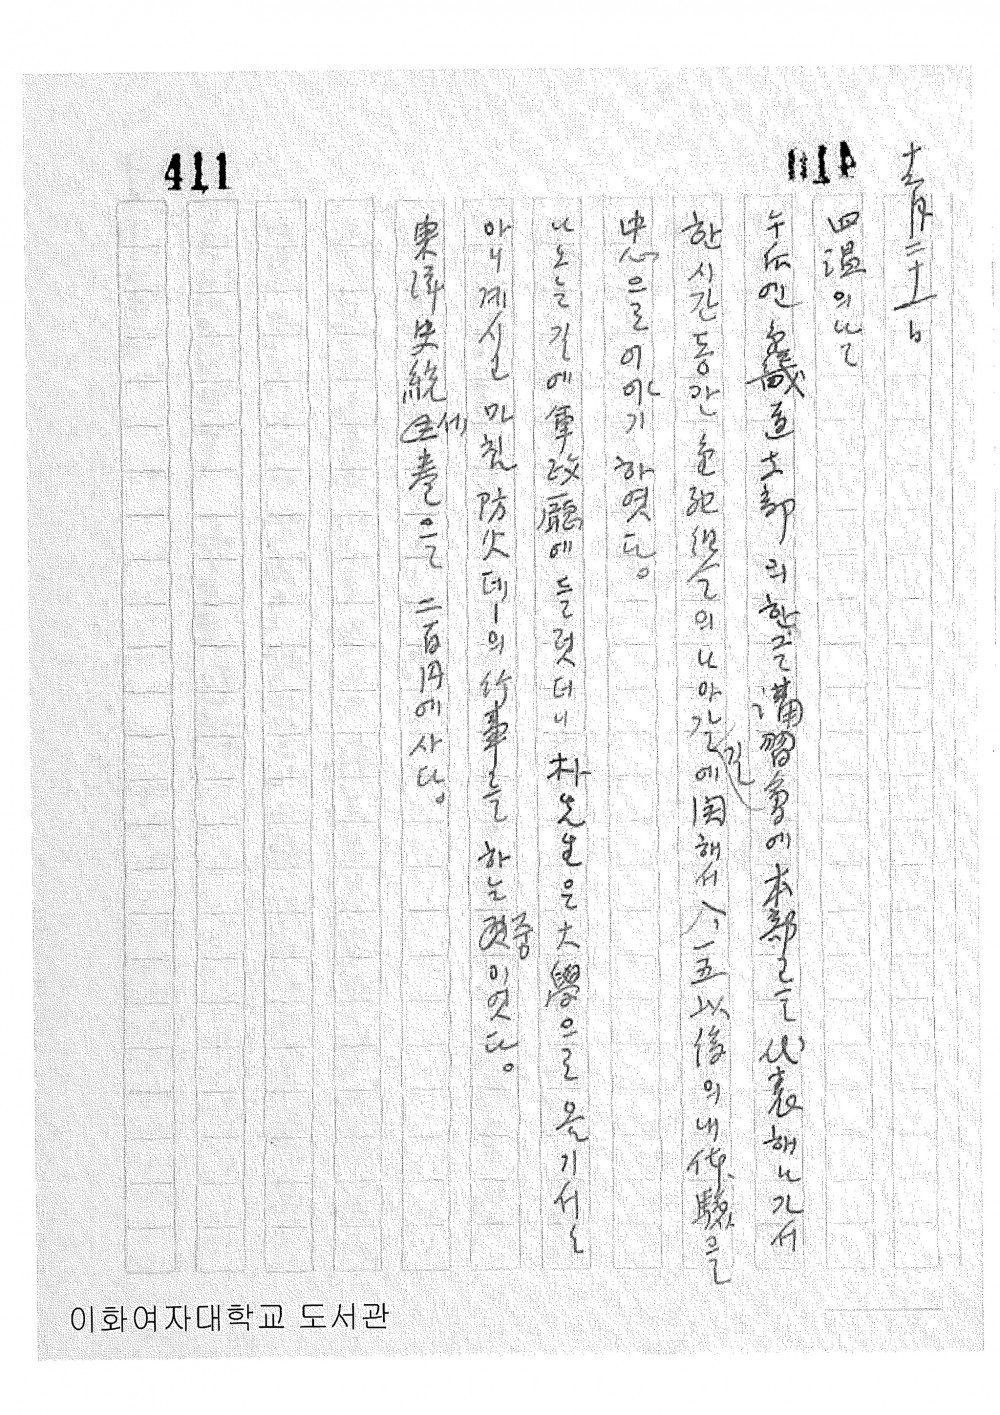 411
十二月二十一日
四溫의 날
午后엔 道支部의 한글 講習會에 本部를 代表해 나가서
한 시간 동안 의 나아갈 길에 関해서 八·一五 以後의 내 体驗을
中心으로 이야기 하엿다。
나오는 길에 軍政廳에 들럿더니 朴先生은 大學으로 옮기서는
아니 계시고 마침 防火데ー의 行事를 하는 中이엿다。
東洋史統 세 卷을 二百円에 사다。
이화여자대학교 도서관